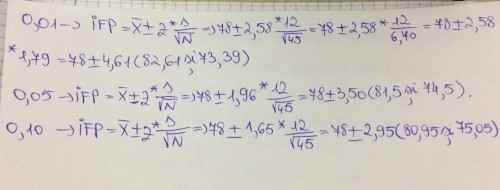 0,01 → iFP = x̄ ± 2 * s/√N => 78 ± 2,58 * 12/√45 = 78 ± 2,58 * 12/6,70 = 78 ± 2,58
* 1,79 = 78 ± 4,61 (82,61 și 73,39)
0,05 → iFP = x̄ ± 2 * s/√N => 78 ± 1,96 * 12/√45 = 78 ± 3,50 (81,5 și 74,5).
0,10 → iFP = x̄ ± 2 * s/√N => 78 ± 1,65 * 12/√45 = 78 ± 2,95 (80,95 și 75,05)